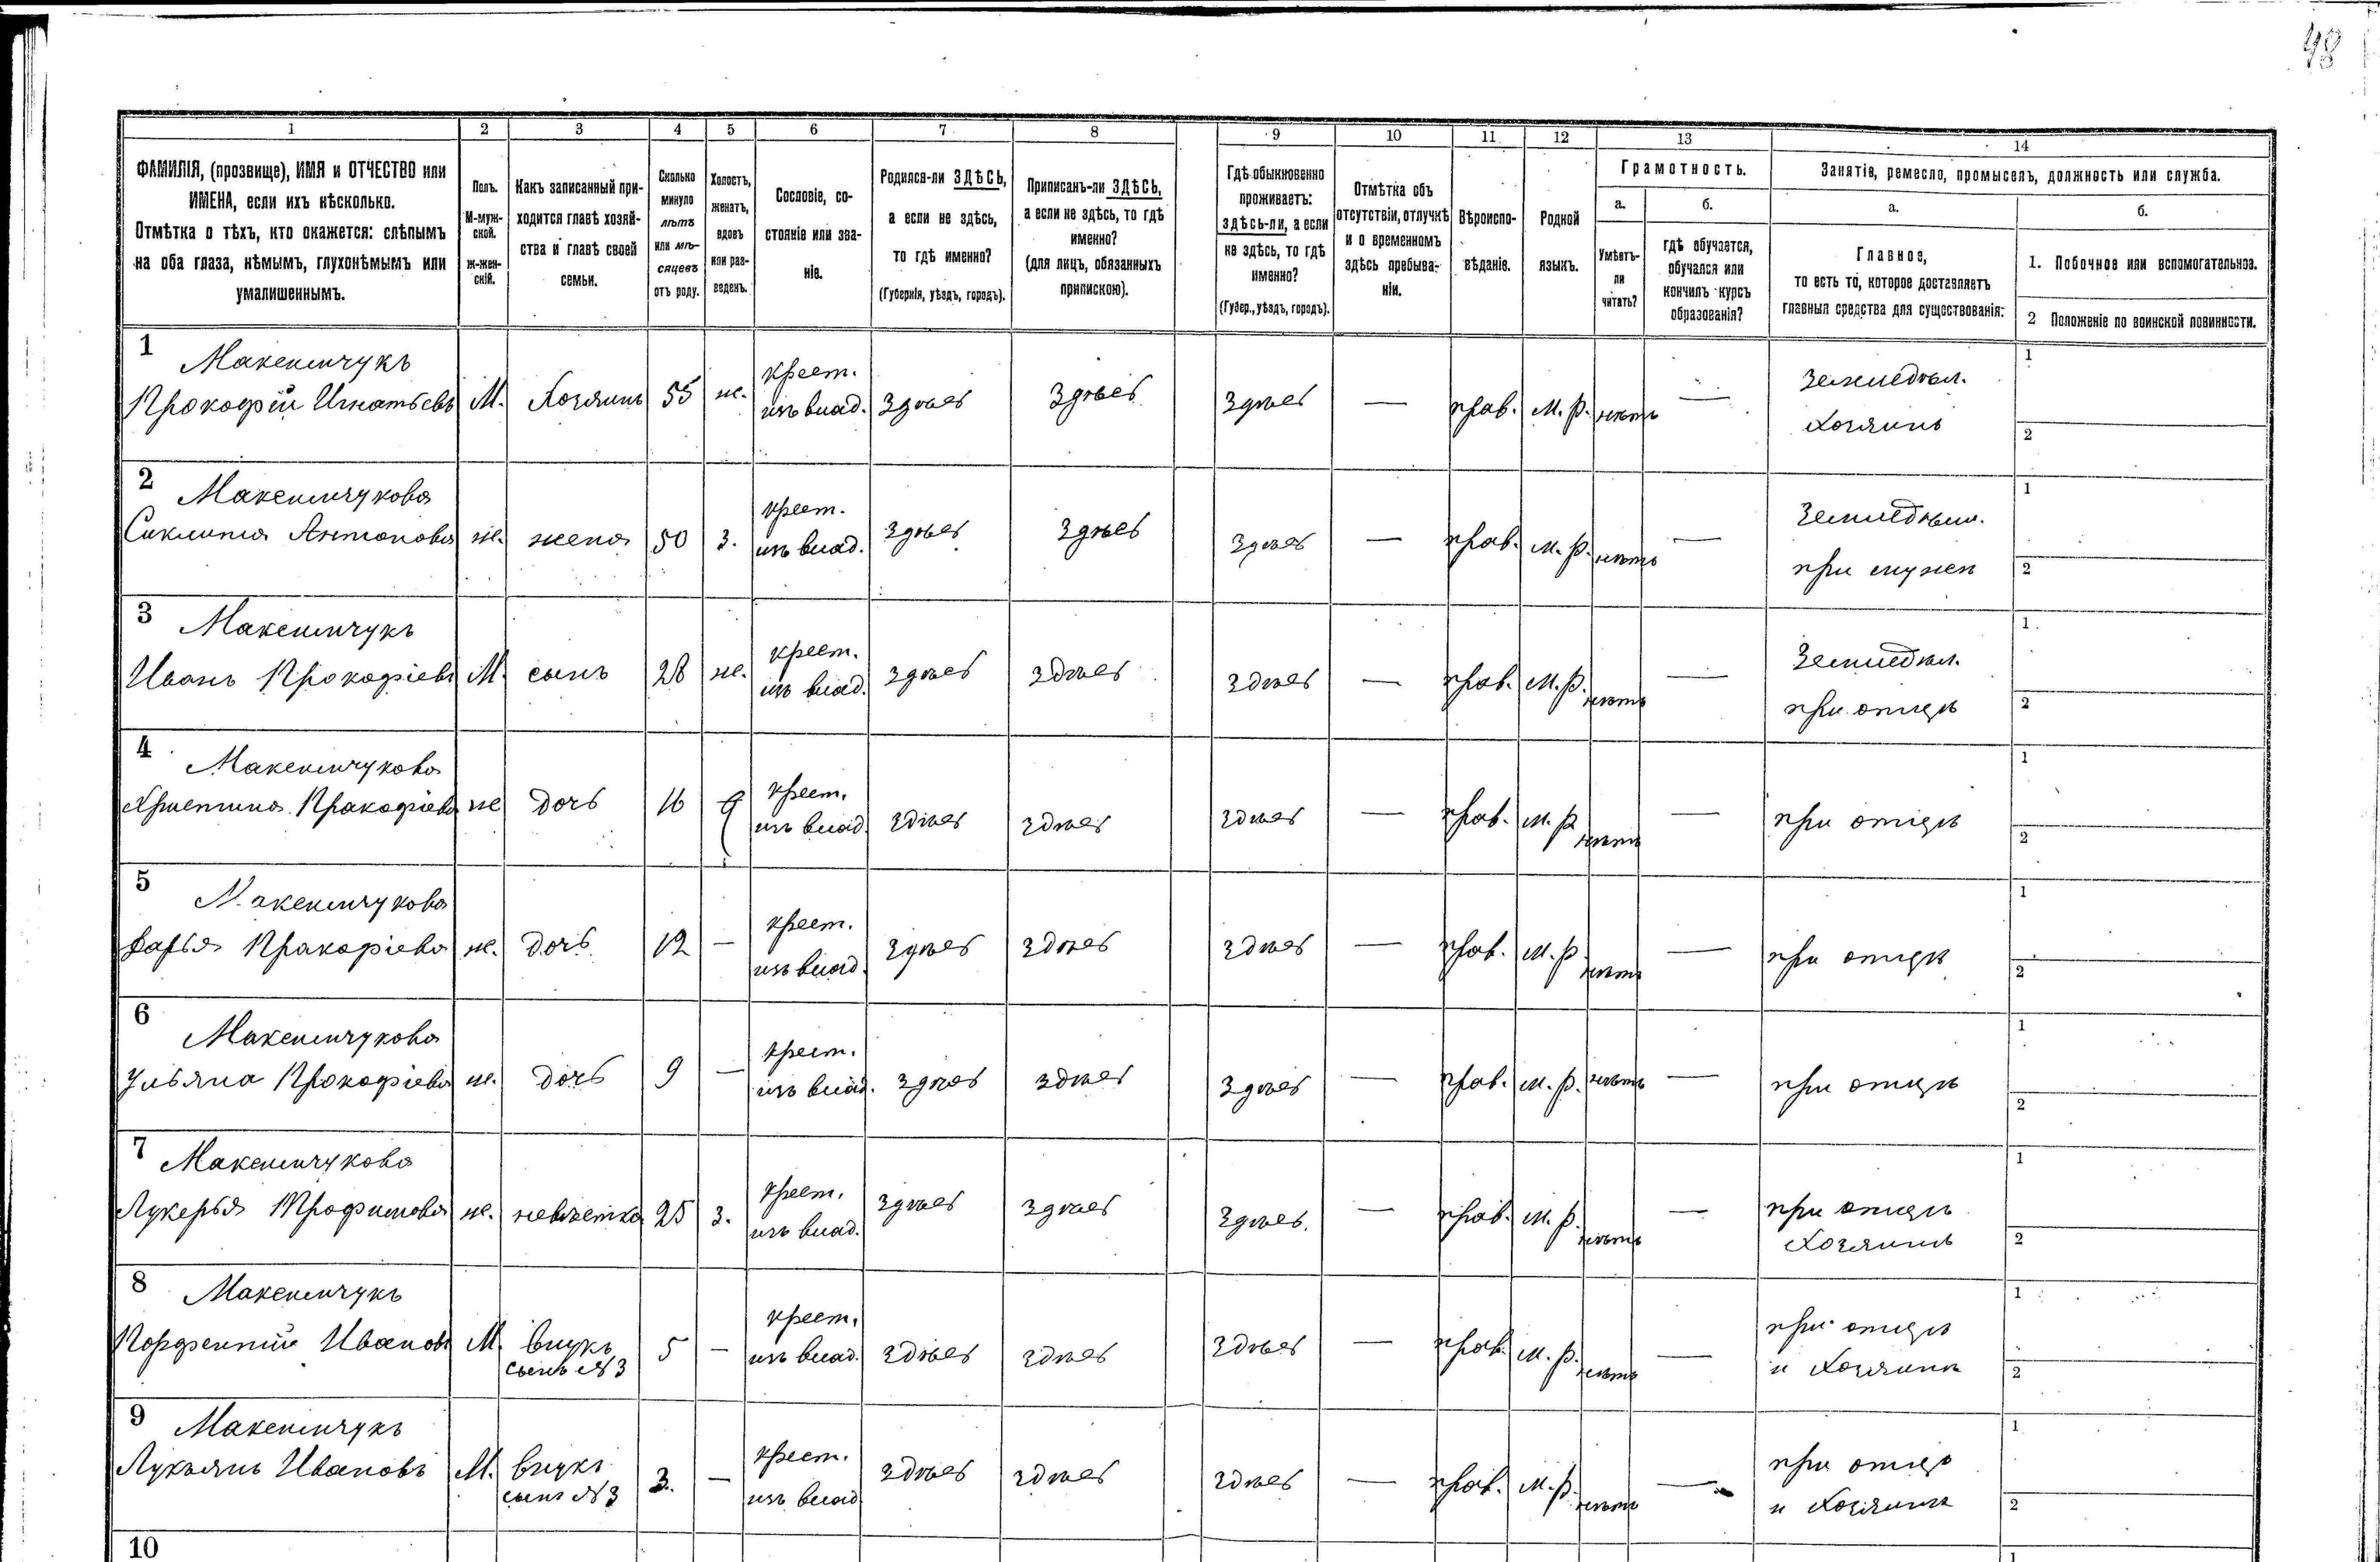 48
1 2 3 4 5 6 7 8 9 10 11 12 13 14
ФАМИЛІЯ, (прозвище), ИМЯ и ОТЧЕСТВО или
ИМЕНА, если ихъ нѣсколько.
Отмѣтка о тѣхъ, кто окажется: слѣпымъ
на оба глаза, нѣмымъ, глухонѣмымъ или
умалишеннымъ.
Полъ.
М-муж-
ской.
Ж-жен-
скій.
Какъ записанный при-
ходится главѣ хозяй-
ства и главѣ своей
семьи.
Сколько
минуло
лѣтъ
или мѣ-
сяцевъ
отъ роду.
Холостъ,
женатъ,
вдовъ
или раз-
веденъ.
Сословіе, со-
стояніе или зва-
ніе.
Родился-ли ЗДѢСЬ,
а если не здѣсь,
то гдѣ именно?
(Губернія, уѣздъ, городъ).
Приписанъ-ли ЗДѢСЬ,
а если не здѣсь, то гдѣ
именно?
(для лицъ, обязанныхъ
припискою).
Гдѣ обыкновенно
проживаетъ:
ЗДѢСЬ-ли, а если
не здѣсь, то гдѣ
именно?
(Губер., уѣздъ, городъ).
Отмѣтка объ
отсутствіи, отлучкѣ
и о временномъ
здѣсь пребыва-
ніи.
Вѣроиспо-
вѣданіе.
Родной
языкъ.
Грамотность.
а.
Умѣетъ-
ли
читать?
б.
гдѣ обучается,
обучался или
кончилъ курсъ
образованія?
Занятіе, ремесло, промыселъ, должность или служба.
а.
Главное,
то есть то, которое доставляетъ
главныя средства для существованія:
б.
1. Побочное или вспомогательное.
2 Положеніе по воинской повинности.
1 Максимчукъ крест. земледѣл. 1
Прокофій Игнатьевъ М. Хозяинъ 55 ж. изъ влад. Здѣсь Здѣсь Здѣсь — прав. М. р. нѣтъ — Хозяинъ 2
2 Максимчукова крест. Земледѣл. 1
Антонова ж. жена 50 з. изъ влад. Здѣсь Здѣсь Здѣсь — прав. м. р. нѣтъ — при мужѣ 2
3 Максимчукъ крест. Земледѣл. 1
Иванъ Прокофіевъ М. сынъ 28 ж. изъ влад. Здѣсь Здѣсь Здѣсь — прав. М. р. нѣтъ — при отцѣ 2
4 Максимчукова крест. 1
Христина Пракофіева ж дочь 16 изъ влад. Здѣсь Здѣсь Здѣсь — прав. м. р нѣтъ — при отцѣ 2
5 Максимчукова крест. 1
Дарья Пракофіева ж. дочь 12 — изъ влад. Здѣсь Здѣсь Здѣсь — прав. м. р. нѣтъ — при отцѣ 2
6 Максимчукова крест. 1
Ульяна Прокофіева ж. дочь 9 — изъ влад. Здѣсь Здѣсь Здѣсь — прав. м. р. нѣтъ — при отцѣ 2
7 Максимчукова крест. при отцѣ 1
Лукерья Трофимова ж. невѣстка 25 з. изъ влад. Здѣсь Здѣсь Здѣсь. — прав. м. р. нѣтъ — Хозяинѣ 2
8 Максимчукъ крест. при отцѣ 1
Ивановъ М. внукъ 5 — изъ влад. Здѣсь Здѣсь Здѣсь — прав. м. р. нѣтъ — и Хозяинѣ 2
сынъ №3
9 Максимчукъ крест. при отцѣ 1
Лукьянъ Ивановъ М. внукъ 3. — изъ влад Здѣсь Здѣсь Здѣсь — прав. м. р. нѣтъ — и Хозяинѣ 2
сынъ №3
10 1